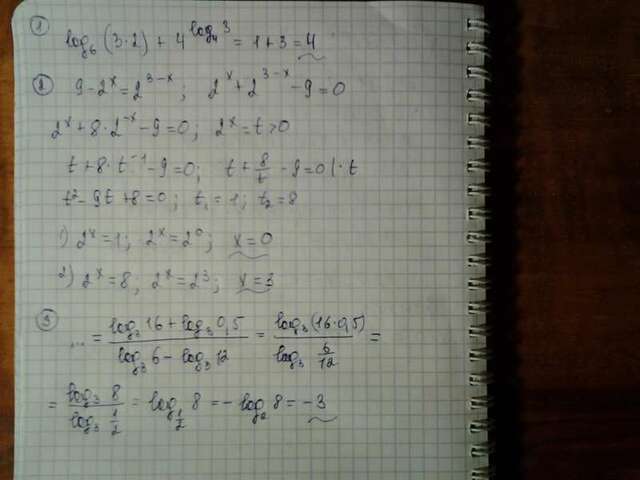 ① log₆(3·2) + 4^(log₄3) = 1+3 = 4
② 9-2ˣ = 2³⁻ˣ; 2ˣ+2³⁻ˣ-9=0
2ˣ+8·2⁻ˣ-9=0; 2ˣ=t>0
t+8·t⁻¹-9=0; t+8/t-9=0|·t
t²-9t+8=0; t₁=1; t₂=8
1) 2ˣ=1; 2ˣ=2⁰; x=0
2) 2ˣ=8; 2ˣ=2³; x=3
③ ... = (log₃16+log₃0,5)/(log₃6-log₃12) = (log₃(16·0,5))/(log₃ 6/12) =
= (log₃8)/(log₃ 1/2) = log_(1/2) 8 = -log₂8 = -3